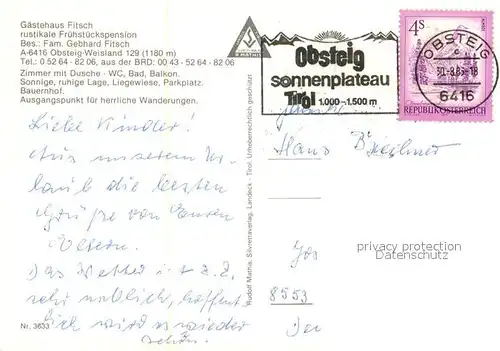 Gästehaus Fitsch
rustikale Frühstückspension
Bes.: Fam. Gebhard Fitsch
A-6416 Obsteig-Weisland 129 (1180 m)
Tel.: 0 52 64 - 82 06, aus der BRD: 00 43 - 52 64 - 82 06
Zimmer mit Dusche - WC, Bad, Balkon.
Sonnige, ruhige Lage, Liegewiese, Parkplatz.
Bauernhof.
Ausgangspunkt für herrliche Wanderungen.
Liebe Kinder!
Aus unserem Ur-
laub die besten
Grüße von Euren
Eltern.
Das Wetter i t z. Z.
sehr neblich, hoffent
lich wird es wieder
schön.
Nr. 3633
Rudolf Mathis, Silvrettaverlag, Landeck - Tirol, Urheberrechtlich geschützt
Obsteig
sonnenplateau
Tirol 1.000 – 1.500 m
4S
REPUBLIK ÖSTERREICH
OBSTEIG
6416
Hans
privacy protection
Datenschutz
8553